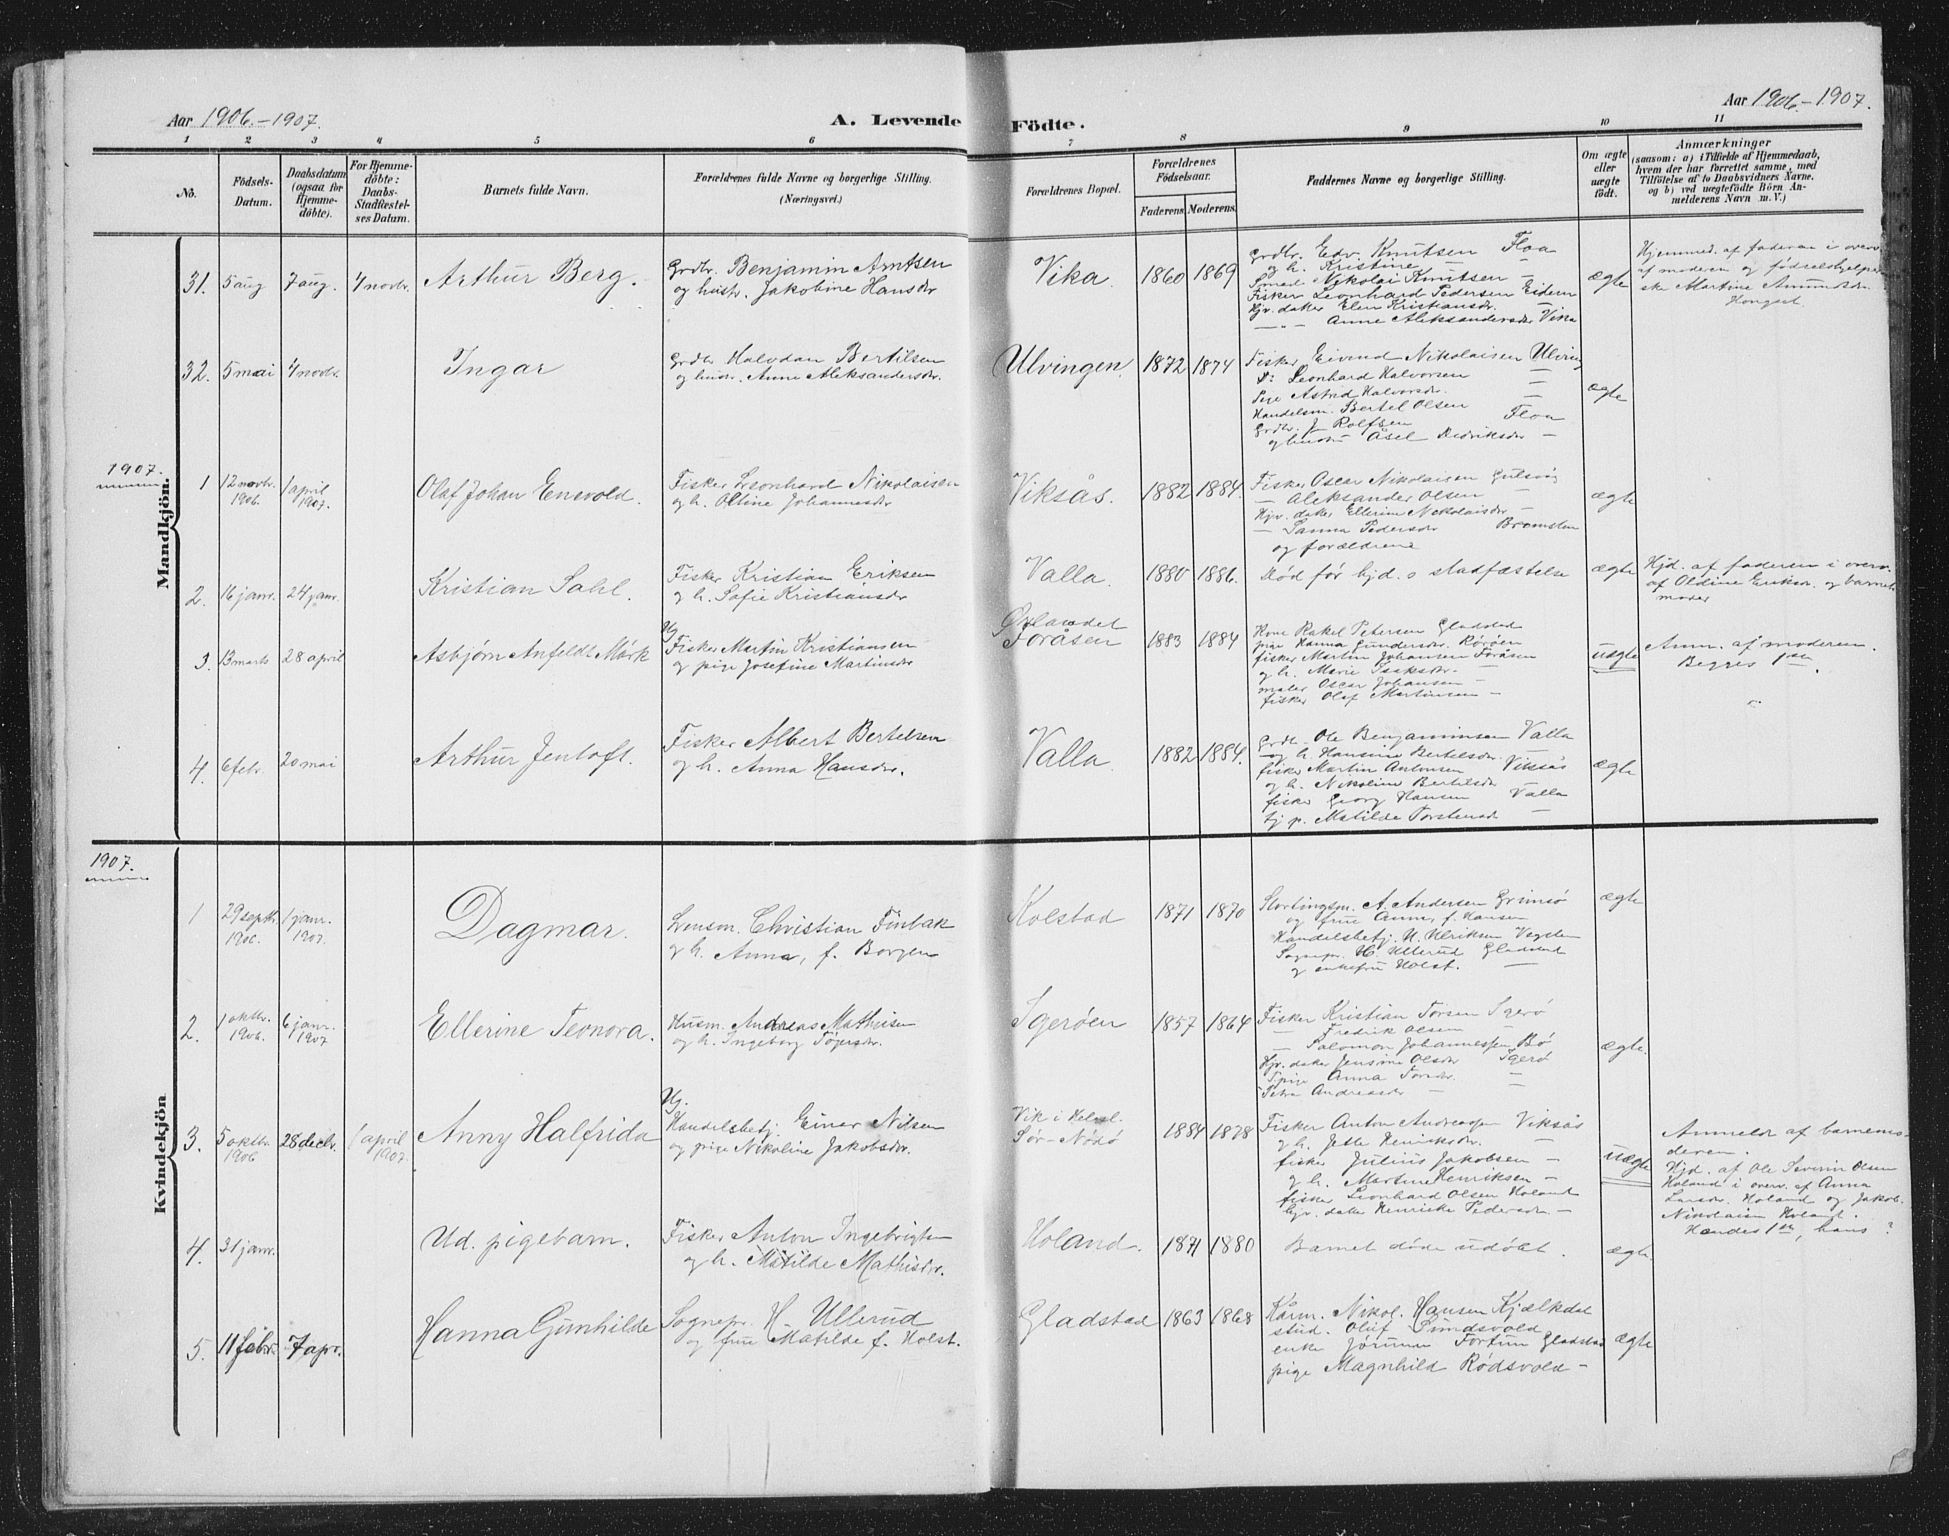 Aar 1906.-1907.
A. Levende Födte.
Aar 1906-1907.
1 2 3 4 5 6 7 8 9 10 11
No.
Födsels-Datum.
Daabsdatum (ogsaa for Hjemme-döbte).
For Hjemme-döbte: Daabs-Stadfæstel-ses Datum.
Barnets fulde Navn.
Forældrenes fulde Navne og borgerlige Stilling.
(Næringsvei.)
Forældrenes Bopæl.
Forældrenes Födselsaar.
Faderens. Moderens.
Faddernes Navne og borgerlige Stilling.
Om ægte eller uægte födt.
Anmærkninger
(saasom: a) i Tilfælde af Hjemmedaab,
hvem der har forrettet samme, med
Tilföielse af to Daabsvidners Navne,
og b) ved uægtefödte Börn An-
melderens Navn m. V.)
Mandkjön.
31. 5 aug 7 aug. 4 novbr. Arthur Berg.
Grdbr. Benjamin Arntsen
og hustr. Jakobine Hansdr
Vika. 1860 1869
Grdbr. Edv. Knutsen Floa
og h. Kristine —
Nikolai Knutsen —
Fisker Leonhard Pedersen Eidem
Hjv. datter Elen Kristiansdr.
— " — Anne Aleksandersdr Vika
ægte
Hjemmed. af faderen i overv.
af moderen og fødselshjelper-
ske Martine Amundsdr.
32. 5 mai 4 novbr. Ingar
Grdbr Halvdan Bertilsen
og hustr. Anne Aleksandersdr.
Ulvingen 1872 1874
Fisker Eivind Nikolaisen Ulving
D: Leonhard Halvorsen —
Pige Astrid Halvorsdr. —
Handelsm. Bertel Olsen —
Grdbr. J. Rolfsen Floa
og hustr Åsel Didriksdr —
ægte
1907.
1 12 novbr. 1906. 1 april 1907. Olaf Johan Ensvold.
Fisker Leonhard Nikolaisen
og h. Oltine Johannesdr
Viksås. 1882 1884.
Fisker Oscar Nikolaisen
— Aleksander Olsen —
Hjv. datter Ellerine Nikolaisdr —
— Sanna Pedersdr
og forældrene
ægte
2. 16 janr. 24 janr. Kristian Sahl.
Fisker Kristian Eriksen
og h. Sofie Kristiansdr
Valla. 1880 1886.
Død før hjd. s stadfæstelse
ægte
Hjd. af faderen i overv.
af Oldine Eriksdr. og barnets
moder
3. 13 marts 28 april Asbjørn Anfeldt Mørk
Ug.
Fisker Martin Kristiansen
og pige Josefine Martinsdr
Foråsen 1883 1884
Kone Rakel Petersen Gladstad
pige Hanna Gundersdr. Rørøen
fisker Martin Johansen Foråsen
og h. Marie Isaksdr. —
maler Oscar Johansen —
fisker Olaf Martinsen —
uægte
Anm. af moderen.
Begges 1ste.
4. 6 febr. 20 mai Arthur Jentoft.
Fisker Albert Bertelsen
og h. Anna Hansdr.
Valla. 1882 1884.
Grdb. Ole Benjaminsen Valla
og h. Hansine Bertelsdr.
fisker Martin Antonsen Viksås
og h. Nikoline Bertilsdr
fisker Georg Hansen Valla
tj p. Matilde Torstensdr —
ægte
1907.
Kvindekjön
1 29 septbr. 1906. 1 janr. 1907. Dagmar.
Lensm. Christian Finbak
og h. Anna, f. Borgen
Kolstad 1871 1870
Stortingsm. A. Andersen Grimsø
og frue Anna, f. Hansen
Handelsbetj. U. Ulriksen
Sognepr. H. Ullerud Gladstad
og enkefru Holst. —
ægte
2. 1 oktbr. 1906. 6 janr. 1907 Ellerine Teonora.
Husm. Andreas Mathisen
og h. Ingeborg Tøgersdr.
Igerøen 1857 1864
Fisker Kristian Torsen Igerø
— Fredrik Olsen —
— Salomon Johannessen Bø
Hjv. datter Jensine Olsdr Igerø
Tjpige Anna Torsdr. —
Petra Andreasdr —
ægte.
3. 5 oktbr. 1906 28 decbr. 1 april 1907. Anny Halfrida
Ug.
Handelsbetj. Einar Nilsen
og pige Nikoline Jakobsdr.
Vik i Helgel.
Sør-Nødø 1884 1878
Fisker Anton Andreassen Viksås
og h. Jette Henriksdr. —
fisker Julius Jakobsen —
og h. Martine Henriksen —
fisker Leonhard Olsen Holand
hjv. datter Henrikke Pedersdr —
uægte
Anmeldt af barnemo-
deren.
Hjd. af Ole Severin Olsen
Holand i overv. af Anna
Larsdr. Holand og Jakob
Nikolaisen Holand.
Hændes 1ste, hans ?
4. 31 janr. Ud. pigebarn.
Fisker Anton Ingebrigtsen
og h. Matilde Mathisdr.
Holand. 1871 1880
Barnet døde udøbt.
ægte
5. 11 febr. 7 apr. Hanna Gunhilde
Sognepr. H. Ullerud
og frue Matilde f. Holst.
Gladstad 1863 1868
Nikol. Hansen
stud. Oluf Sundsvold
enke Jørunn Fortun Gladstad
pige Magnhild Rødsvold —
ægte